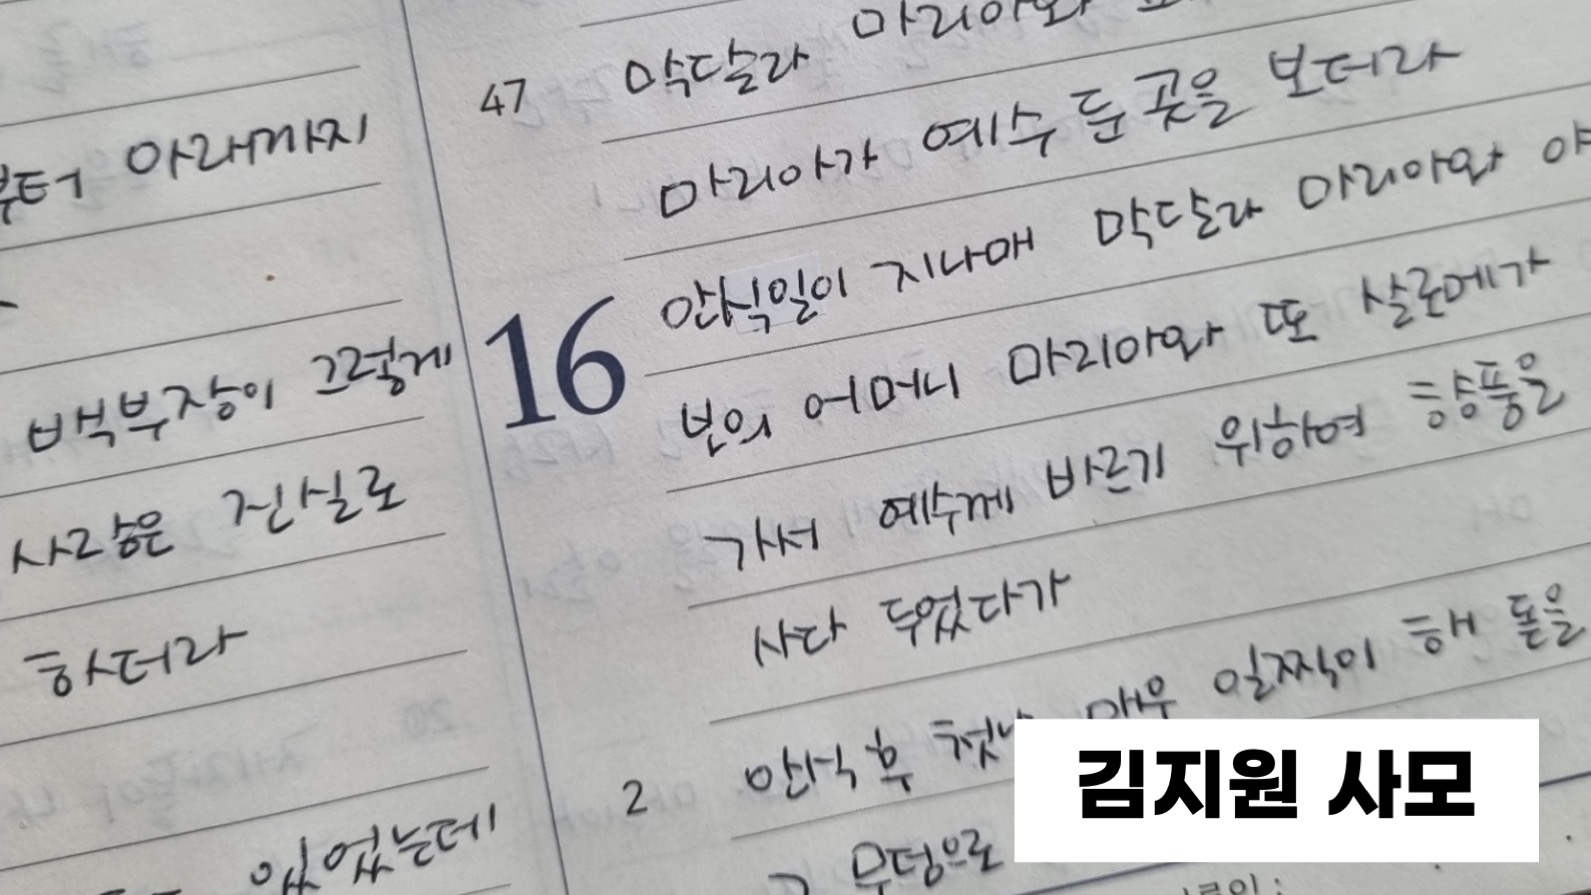 부터 아래까지
백부장이 그렇게
사람은 진실로
하더라
있었는데
47 막달라 마리아와
마리아가 예수 둔 곳을 보더라
16 안식일이 지나매 막달라 마리아와 야
보의 어머니 마리아와 또 살로메가
가서 예수께 바르기 위하여 향품을
사다 두었다가
2 안식 후 첫 매우 일찍이 해 돋을
그 무덤으로
김지원 사모